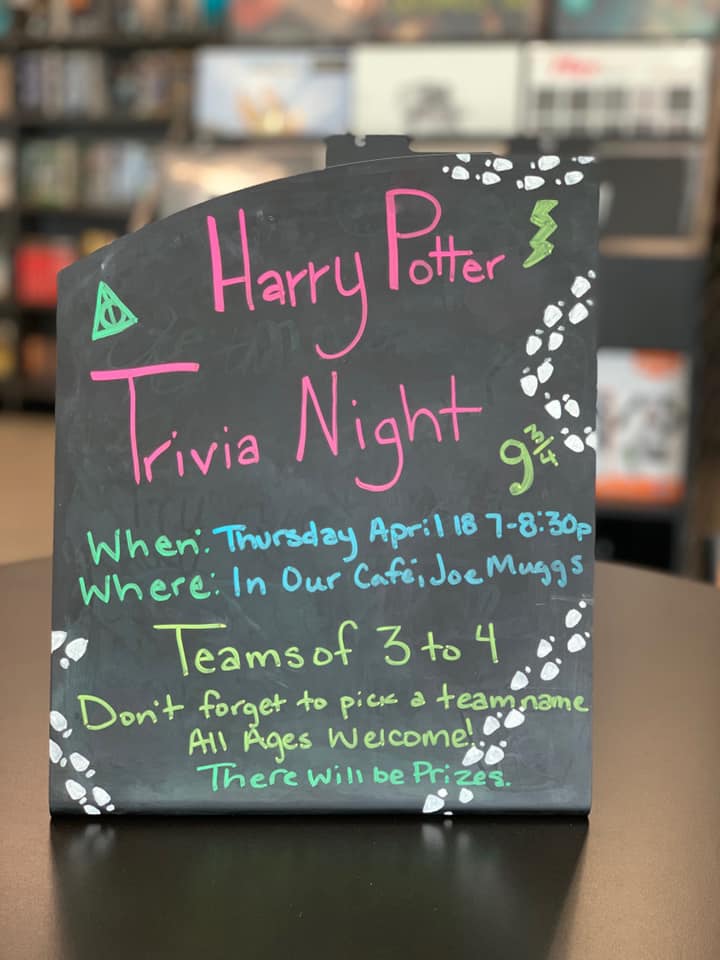 Harry Potter
Trivia Night
9 3/4
When: Thursday April 18 7-8:30p
Where: In Our Café, Joe Muggs
Teams of 3 to 4
Don't forget to pick a team name
All Ages Welcome!
There will be Prizes.